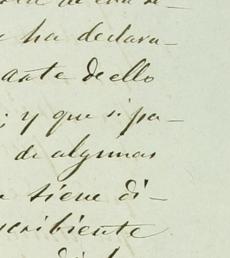 ha declara-
ante de ello
; y que si pa-
de algunas
tiene di-
cribiente